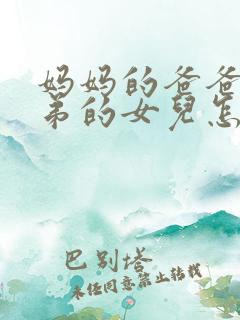 妈妈的爸爸
弟的女兒怎
巴别塔
未经同意禁止转载